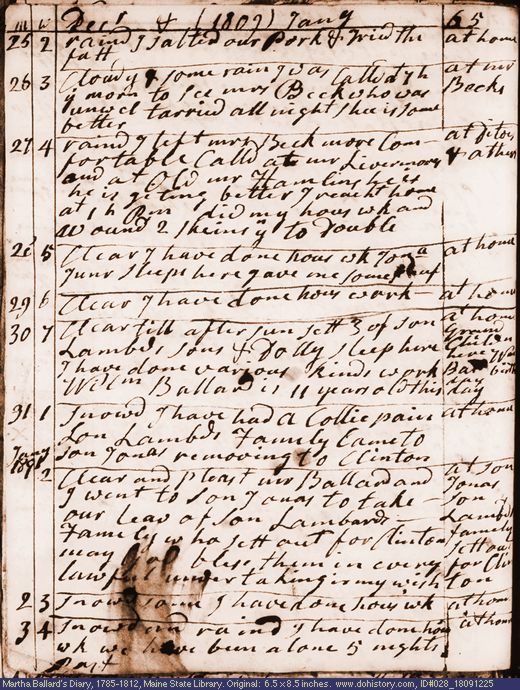 m w Decr & (1809) Jany 65
25 2 raind I salted our Pork & tried the at home
fatt
26 3 Clowdy & some rain I was Calld at 7 h at mr
morn to see mrs Beck who was Becks
unwel tarried all night shee is some
better
27 4 raind I left mrs Beck more Com- at ditoes
fortable Calld at mr Livermores & at hers
and at Old mr Hamlins he is
he is geting better I reacht home
at 1 h Pm I did my hous wk and
wound 2 skeins to double
28 5 Clear I have done hous wk Jona at home
Junr sleeps here gave me some
29 6 Clear I have done hous work at home
30 7 Clear till after sun sett 3 of son at home
Lambds sons & Dolly sleep here Grand Children
I have done various kinds work here Wm
Wilm Ballard is 11 years old this day Bal birth day
31 1 Snowd I have had a Collic pain at home
son Lambds Family Came to
Jany 1810 son Jonas removing to Clinton
2 Clear and pleast mr Ballard and at son
I went to son Jonas to take Jonas
our leav of son Lambard son
Family who sett out for Clinton Lambds family
may God bless them in every sett out
lawful undertaking is my wish for Clinton
2 3 Snowd some I have done hous wk at home
3 4 Snowd and raind I have done hous at home
wk we have been alone 5 nights
Past
Martha Ballard's Diary, 1785-1812, Maine State Library. Original: 6.5 x 8.5 inches. www.dohistory.com, ID#028_18091225